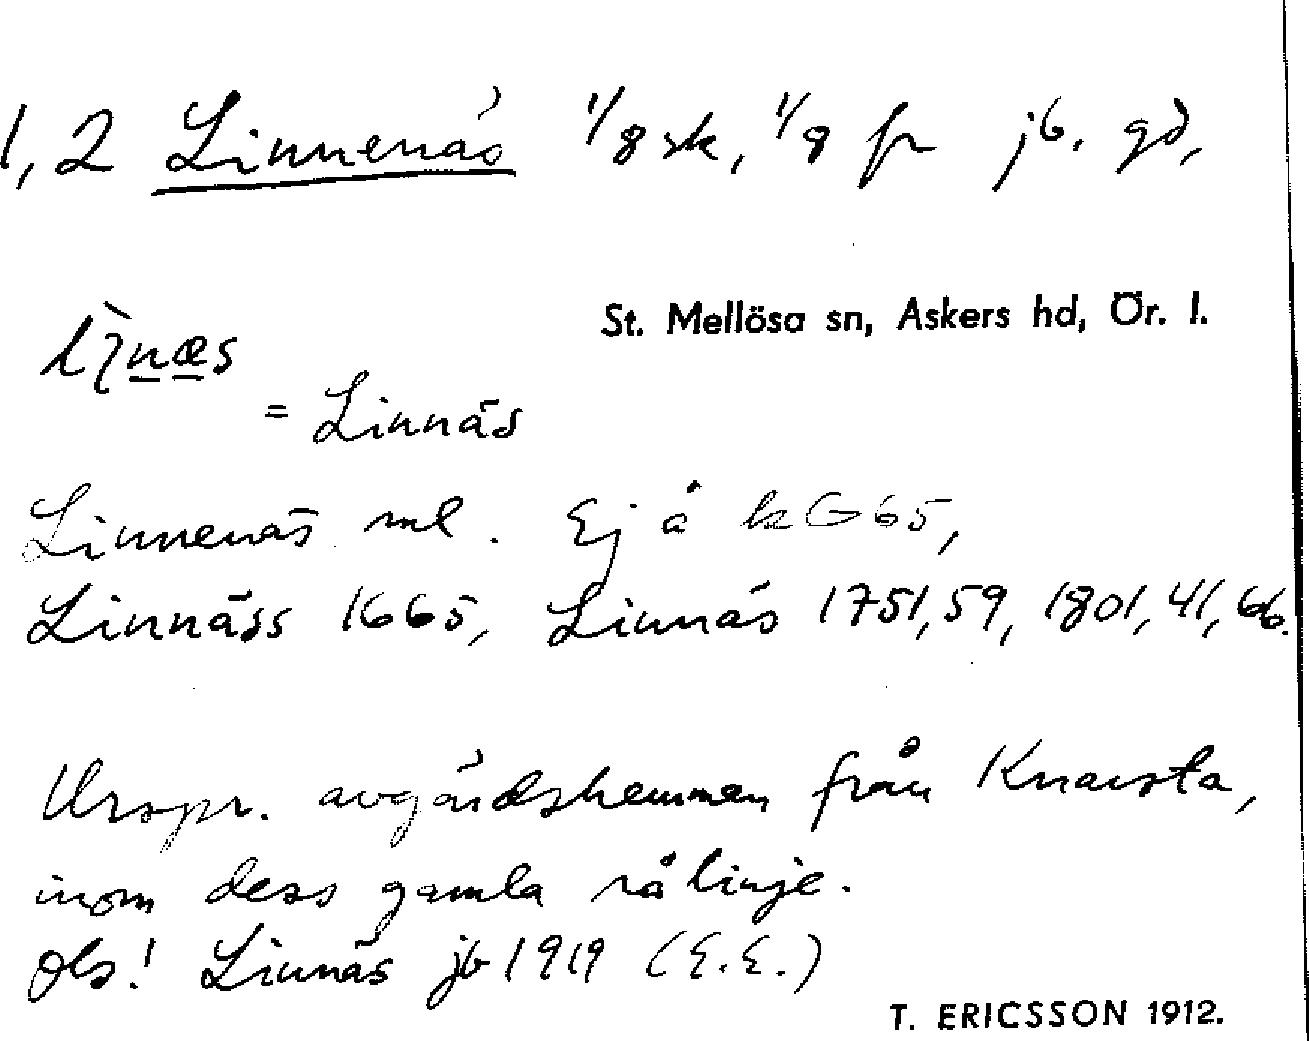 1, 2 Linnenäs 1/8 sk, 1/8 fr jb. gd,
St. Mellösa sn, Askers hd, Ör. l.
= Linnäs
Linnenäs ml. Ej å kG65,
Linnäss 1665, Linnäs 1751, 59, 1801, 41, 66.
Urspr. avgärdshemman från Knausta,
inom dess gamla rålinje.
Obs! Linnäs jb 1919 (E.E.)
T. ERICSSON 1912.